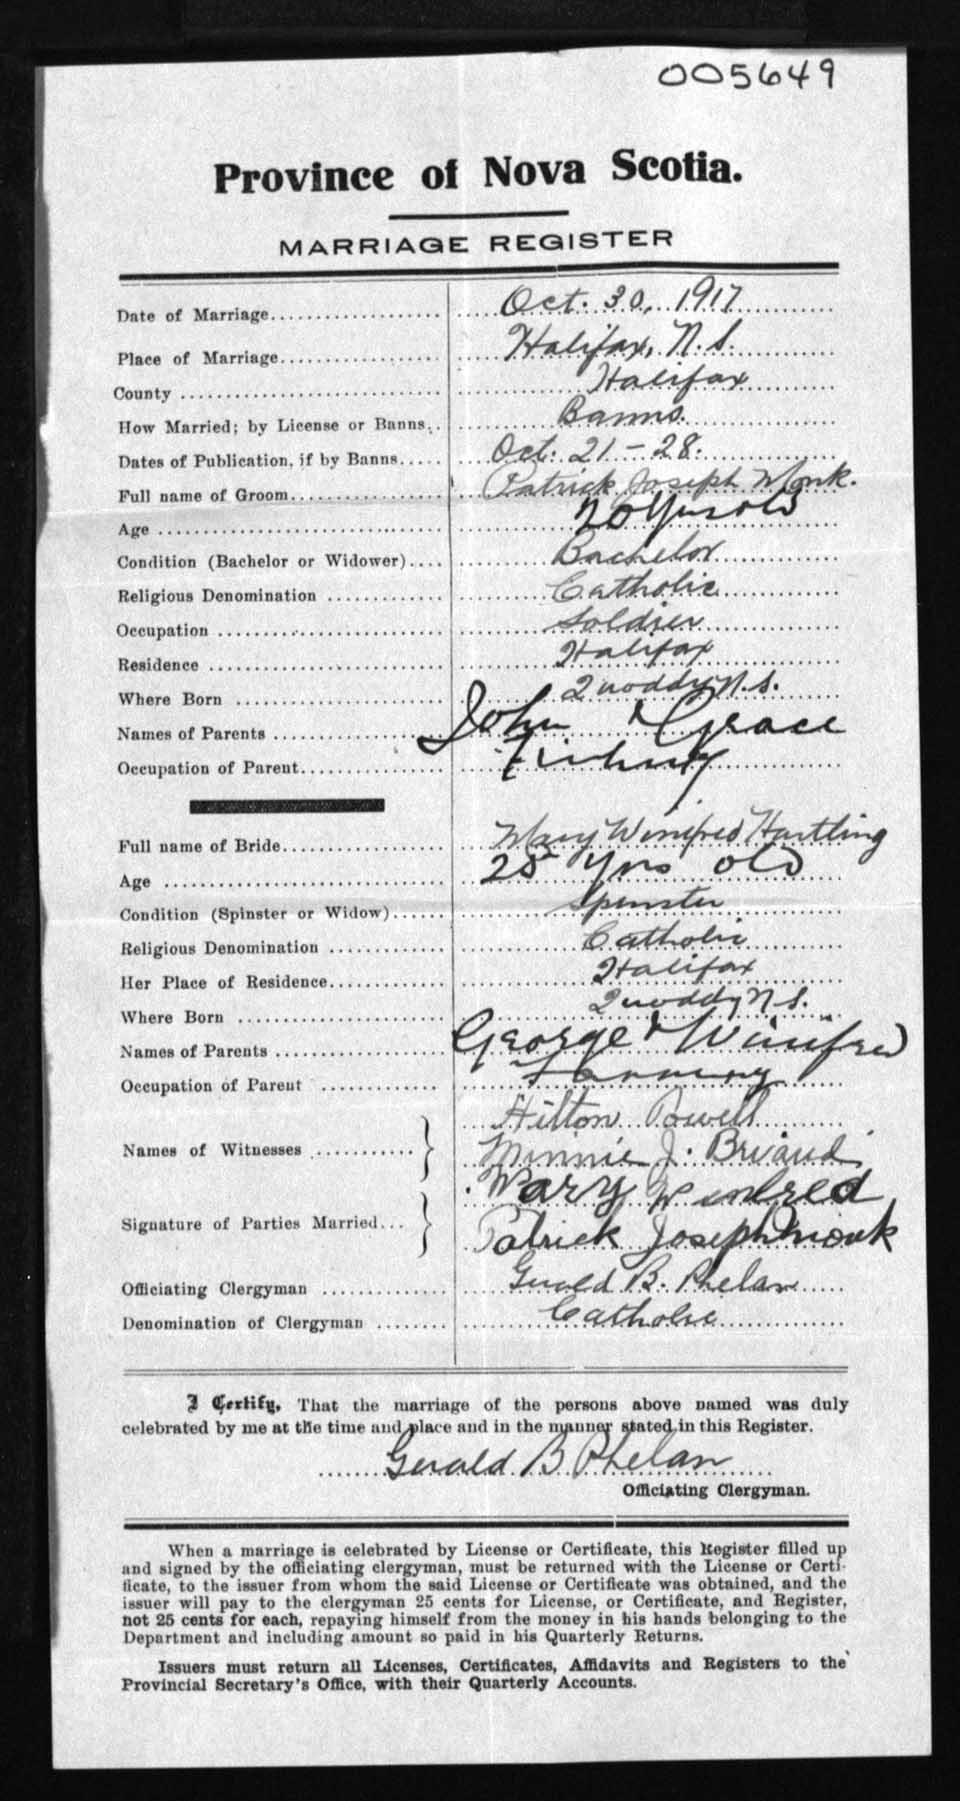 005649
Province of Nova Scotia.
MARRIAGE REGISTER
Date of Marriage Oct. 30, 1917
Place of Marriage Halifax, N.S.
County Halifax
How Married; by License or Banns Banns.
Dates of Publication, if by Banns Oct. 21 – 28.
Full name of Groom Patrick Joseph Monk.
Age 20 Yrs old
Condition (Bachelor or Widower) Bachelor
Religious Denomination Catholic
Occupation Soldier
Residence Halifax
Where Born Quoddy N.S.
Names of Parents John & Grace
Occupation of Parent
Full name of Bride Mary Winifred Hartling
Age 25 Yrs old
Condition (Spinster or Widow) Spinster
Religious Denomination Catholic
Her Place of Residence Halifax
Where Born Quoddy N.S.
Names of Parents George & Winifred
Occupation of Parent
Names of Witnesses Hilton Powell
Minnie J. Briand
Signature of Parties Married Mary
Patrick Joseph Monk
Officiating Clergyman Gerald B. Phelan
Denomination of Clergyman Catholic
I Certify, That the marriage of the persons above named was duly
celebrated by me at the time and place and in the manner stated in this Register.
Gerald B Phelan
Officiating Clergyman.
When a marriage is celebrated by License or Certificate, this Register filled up
and signed by the officiating clergyman, must be returned with the License or Certi-
ficate, to the issuer from whom the said License or Certificate was obtained, and the
issuer will pay to the clergyman 25 cents for License, or Certificate, and Register,
not 25 cents for each, repaying himself from the money in his hands belonging to the
Department and including amount so paid in his Quarterly Returns.
Issuers must return all Licenses, Certificates, Affidavits and Registers to the
Provincial Secretary's Office, with their Quarterly Accounts.